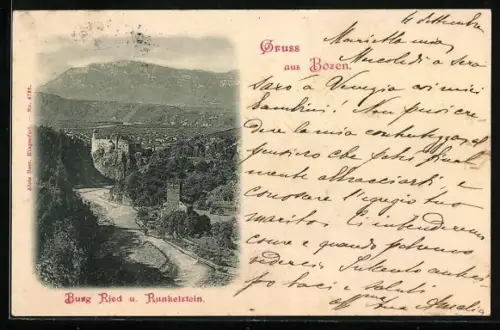 4 Settembre
Gruss
aus Bozen.
Marietta mia,
Mercoledì a sera
sarò a Venezia coi miei
bambini! Non puoi cre-
dere la mia contentezza al
pensiero che potrò final
mente abbracciarti e
conoscere l'egregio tuo
marito. C'intenderemo
come e quando potremo
vederci. Intanto antici-
po baci e saluti
aff.ma tua Amalia
Alois Beer, Klagenfurt.
Burg Ried u. Runkelstein.